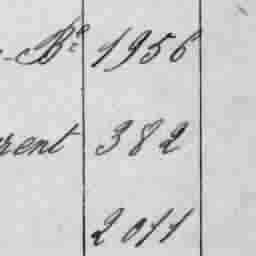 Bce 1956
rent 382
2011